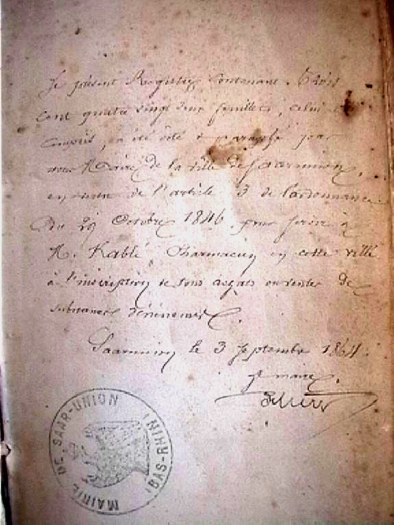 Le présent Registre contenant trois
cent quatre vingt deux feuillets, celui-ci
compris, a été coté & paraphé par
nous Maire de la ville de Saarunion,
en vertu de l'article 3 de l'ordonnance
du 29 Octobre 1846 pour servir à
M. Kablé, Pharmacien en cette ville
à l'inscription de tous achats ou ventes de
substances vénéneuses.
Saarunion le 3 Septembre 1864
Le maire,
MAIRIE DE SAAR-UNION (BAS-RHIN)